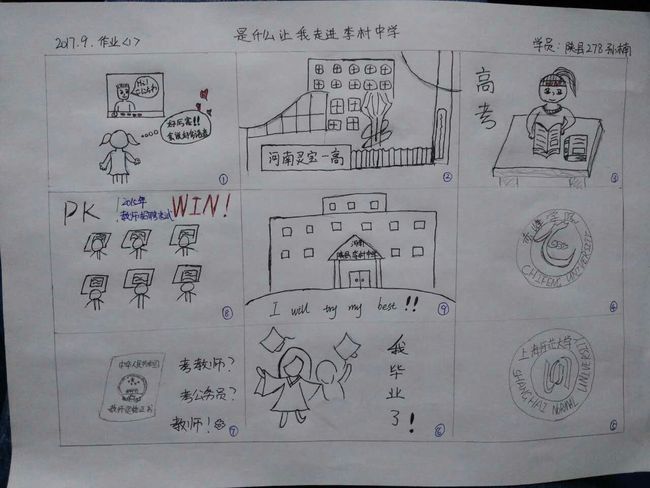 2017.9.作业<1>
是什么让我走进李村中学
学员:陕县278孙楠
①
河南灵宝一高
②
高考
③
PK
2015年
教师招聘考试
WIN!
⑧
河南
陕县李村中学
I will try my best!!
⑨
赤峰学院
CHIFENG UNIVERSITY
④
中华人民共和国
教师资格证书
考教师?
考公务员?
教师!
⑦
我毕业了!
⑥
上海师范大学
SHANGHAI NORMAL UNIVERSITY
⑤